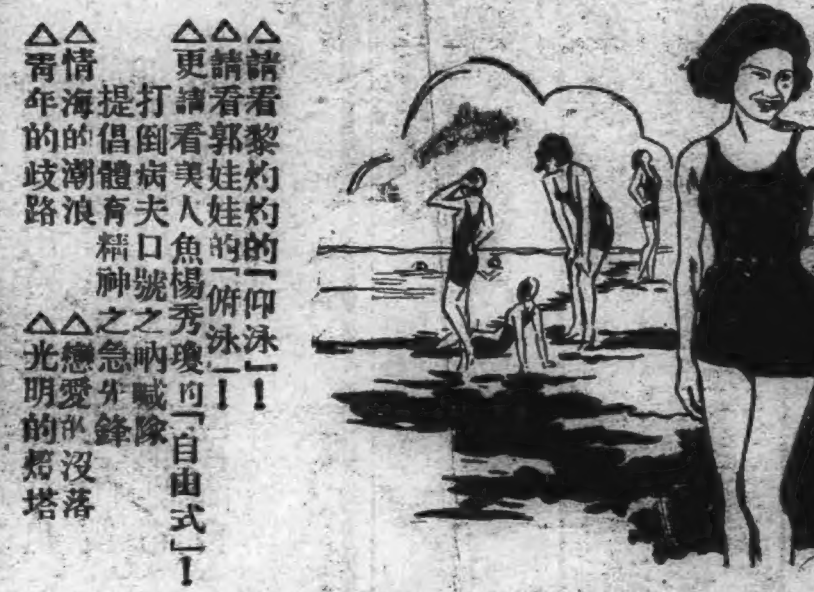 △請看黎灼灼的『仰泳』！
△請看郭娃娃的『俯泳』！
△更請看美人魚楊秀瓊的『自由式』！
打倒病夫口號之吶喊隊
提倡體育精神之急先鋒
△情海的潮浪
△戀愛的沒落
△青年的歧路
△光明的燈塔